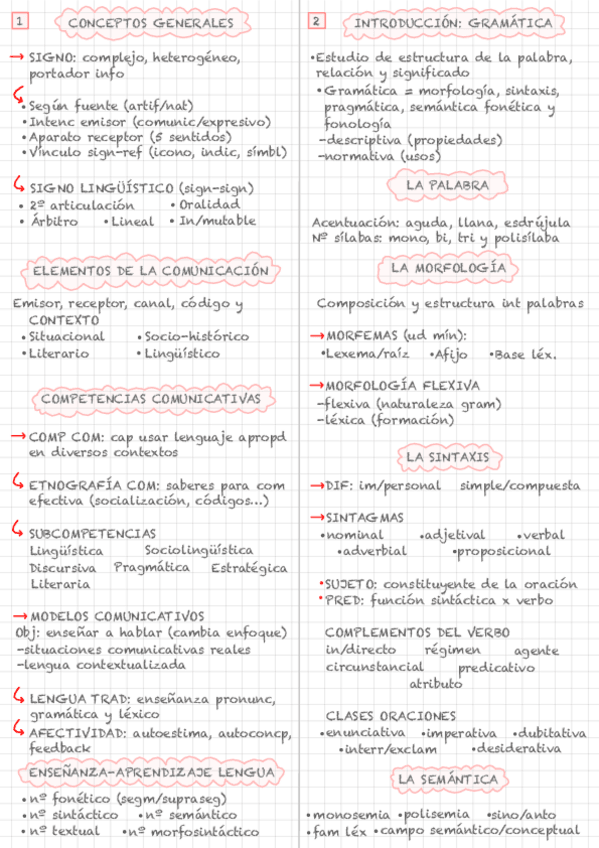 1
CONCEPTOS GENERALES
→ SIGNO: complejo, heterogéneo,
portador info
• Según fuente (artif/nat)
• Intenc emisor (comunic/expresivo)
• Aparato receptor (5 sentidos)
• Vínculo sign-ref (icono, indic, símbl)
SIGNO LINGÜÍSTICO (sign-sign)
• 2ª articulación • Oralidad
• Árbitro • Lineal • In/mutable
ELEMENTOS DE LA COMUNICACIÓN
Emisor, receptor, canal, código y
CONTEXTO
• Situacional • Socio-histórico
• Literario • Lingüístico
COMPETENCIAS COMUNICATIVAS
→ COMP COM: cap usar lenguaje apropd
en diversos contextos
ETNOGRAFÍA COM: saberes para com
efectiva (socialización, códigos...)
SUBCOMPETENCIAS
Lingüística Sociolingüística
Discursiva Pragmática Estratégica
Literaria
→ MODELOS COMUNICATIVOS
Obj: enseñar a hablar (cambia enfoque)
-situaciones comunicativas reales
-lengua contextualizada
LENGUA TRAD: enseñanza pronunc,
gramática y léxico
AFECTIVIDAD: autoestima, autoconcp,
feedback
ENSEÑANZA-APRENDIZAJE LENGUA
• nº fonético (segm/supraseg)
• nº sintáctico • nº semántico
• nº textual • nº morfosintáctico
2
INTRODUCCIÓN: GRAMÁTICA
•Estudio de estructura de la palabra,
relación y significado
•Gramática = morfología, sintaxis,
pragmática, semántica fonética y
fonología
-descriptiva (propiedades)
-normativa (usos)
LA PALABRA
Acentuación: aguda, llana, esdrújula
Nº sílabas: mono, bi, tri y polisílaba
LA MORFOLOGÍA
Composición y estructura int palabras
→MORFEMAS (ud mín):
•Lexema/raíz •Afijo •Base léx.
→MORFOLOGÍA FLEXIVA
-flexiva (naturaleza gram)
-léxica (formación)
LA SINTAXIS
→DIF: im/personal simple/compuesta
→SINTAGMAS
•nominal •adjetival •verbal
•adverbial •proposicional
•SUJETO: constituyente de la oración
•PRED: función sintáctica x verbo
COMPLEMENTOS DEL VERBO
in/directo régimen agente
circunstancial predicativo
atributo
CLASES ORACIONES
•enunciativa •imperativa •dubitativa
•interr/exclam •desiderativa
LA SEMÁNTICA
•monosemia •polisemia •sino/anto
•fam léx •campo semántico/conceptual